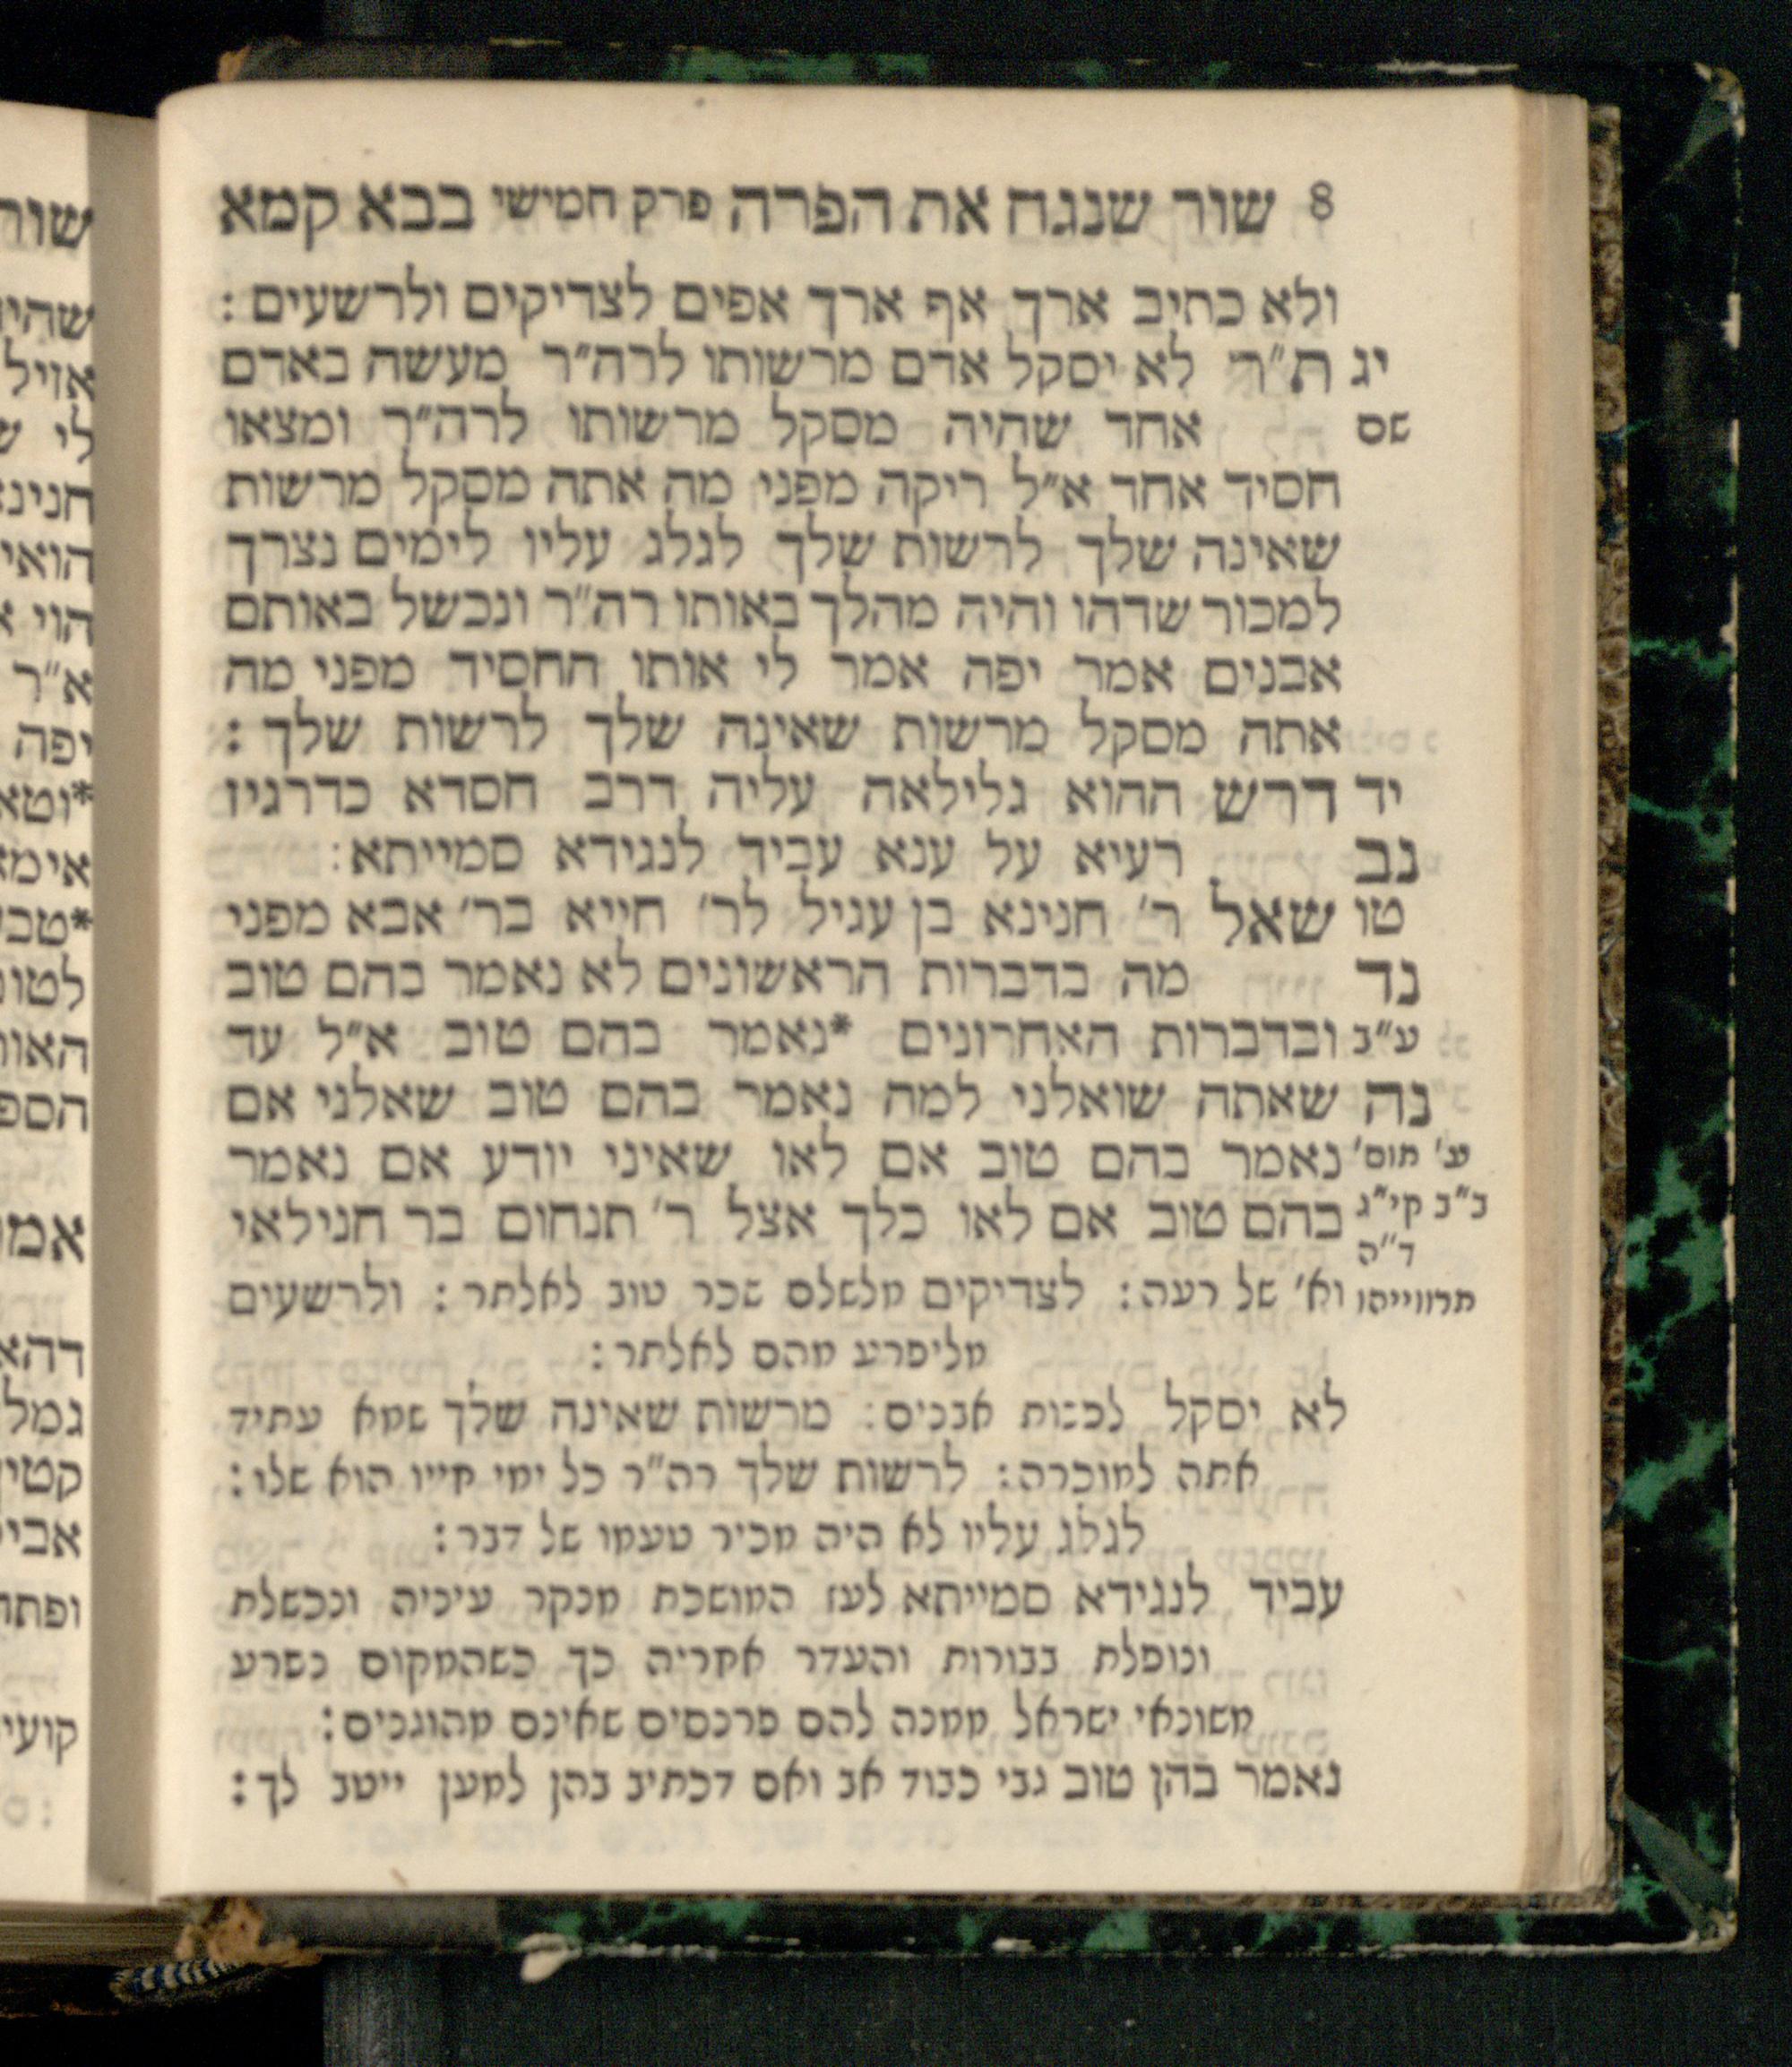 8 שור שנגח את הפרה פרק חמישי בבא קמא
ולא כתיב ארך אף ארך אפים לצדיקים ולרשעים :
יג ת״ר לא יסקל אדם מרשותו לרה״ר מעשה באדם
שם אחד שהיה מסקל מרשותו לרה״ר ומצאו
חסיד אחד א״ל ריקה מפני מה אתה מסקל מרשות
שאינה שלך לרשות שלך לגלג עליו לימים נצרך
למכור שדהו והיה מהלך באותו רה״ר ונכשל באותם
אבנים אמר יפה אמר לי אותו החסיד מפני מה
אתה מסקל מרשות שאינה שלך לרשות שלך :
יד דרש ההוא גלילאה עליה דרב חסדא כדרגיז
נב רעיא על ענא עביד לנגידא סמייתא :
טו שאל ר׳ חנינא בן עגיל לר׳ חייא בר׳ אבא מפני
נד מה בדברות הראשונים לא נאמר בהם טוב
ע״ב ובדברות האחרונים *נאמר בהם טוב א״ל עד
נה שאתה שואלני למה נאמר בהם טוב שאלני אם
ע׳ תוס׳ נאמר בהם טוב אם לאו שאיני יודע אם נאמר
ב״ב קי״ג בהם טוב אם לאו כלך אצל ר׳ תנחום בר חנילאי
ד״ה
תרווייהו וא׳ של רעה : לצדיקים מלשלם שכר טוב לאלתר : ולרשעים
מליפרע מהם לאלתר :
לא יסקל לפנות אבנים : מרשות שאינה שלך שמא עתיד
אתה למוכרה : לרשות שלך רה״ר כל ימי חייו הוא שלו :
לגלג עליו לא היה מכיר טעמו של דבר :
עביד לנגידא סמייתא לעז המושכת מנקר עיניה ונכשלת
ונופלת בבורות והעדר אחריה כך כשהמקום נפרע
משונאי ישראל ממנה להם פרנסים שאינם מהוגנים :
נאמר בהן טוב גבי כבוד אב ואם דכתיב בהן למען ייטב לך :